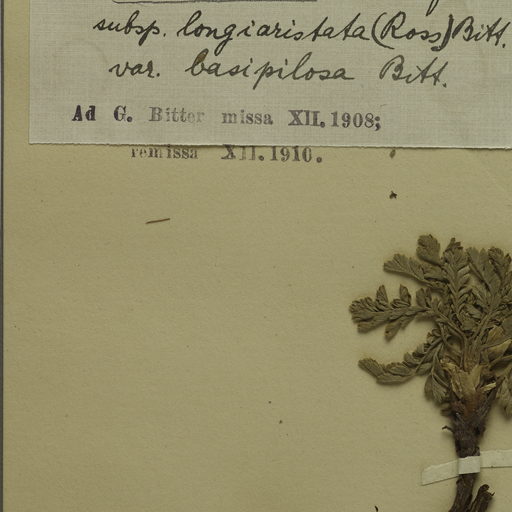 subsp. longiaristata (Ross) Bitt.
var. basipilosa Bitt.
Ad G. Bitter missa XII. 1908;
remissa XII. 1910.